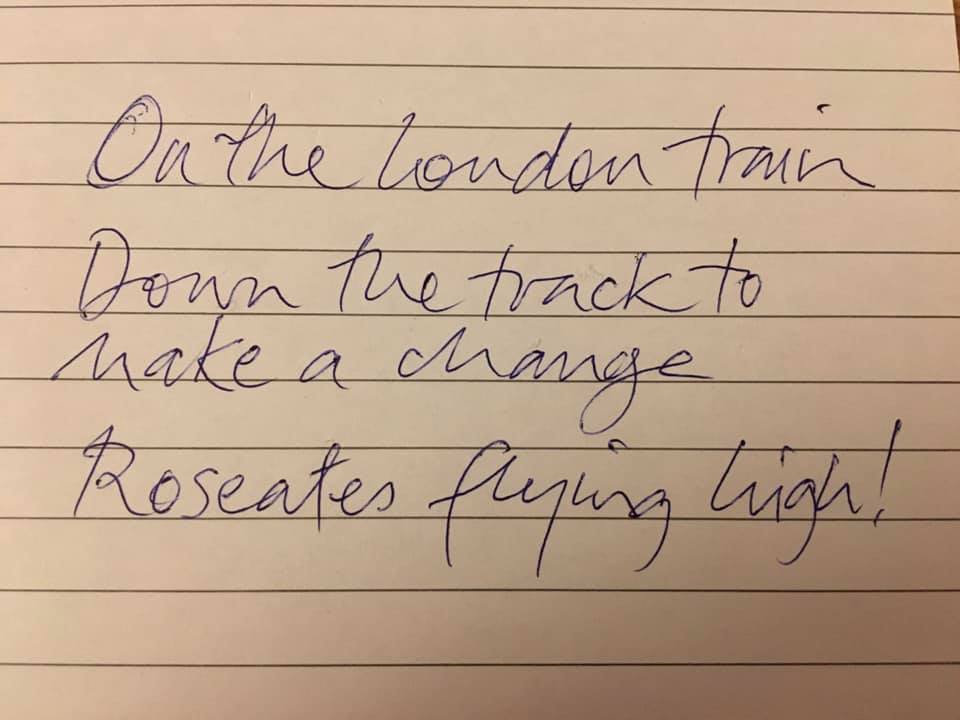 On the London train
Down the track to
make a change
Roseates flying high!